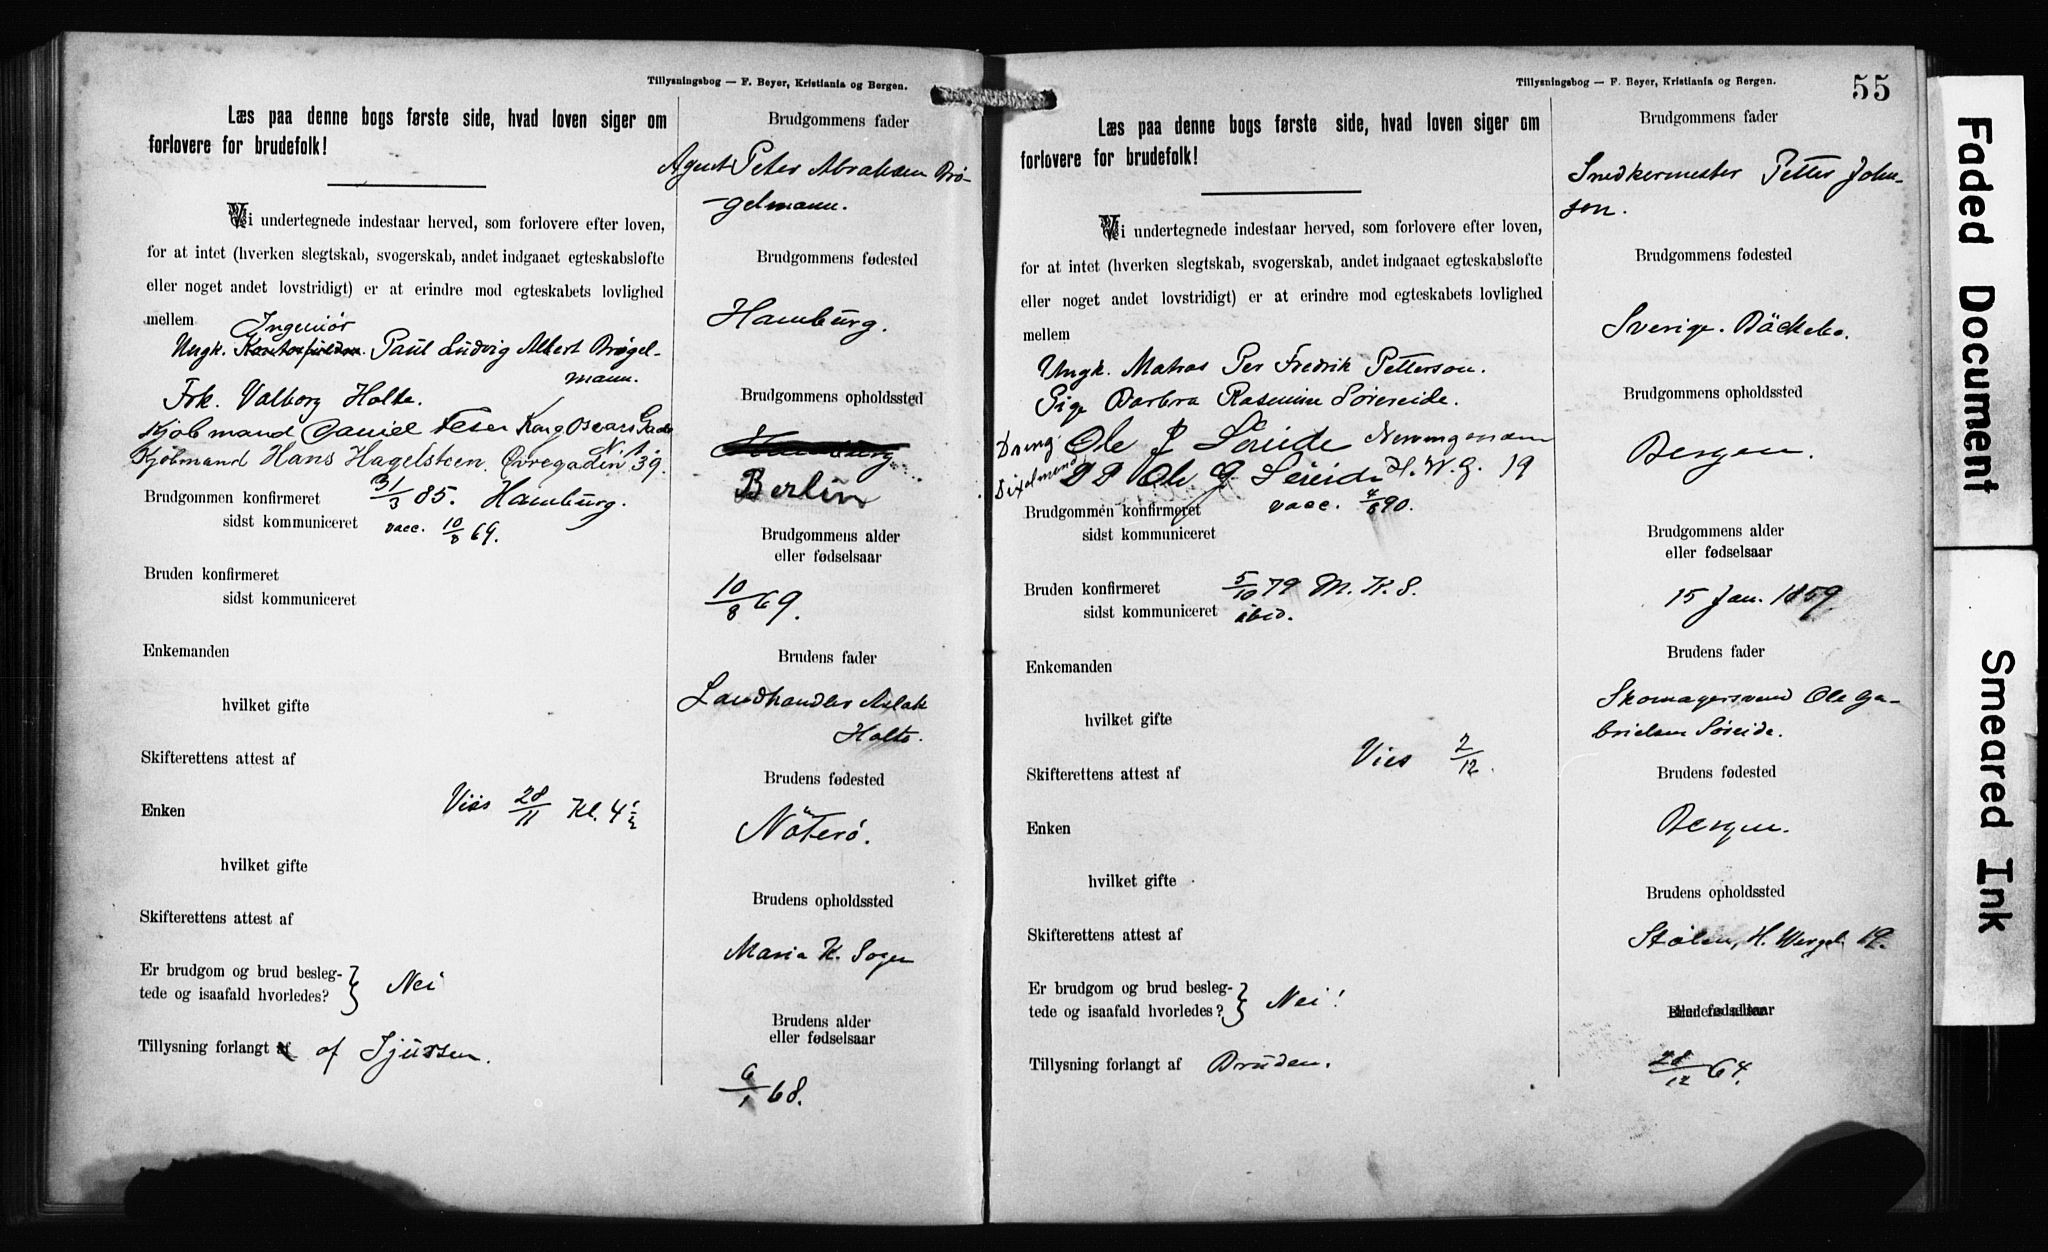 Tillysningsbog — F. Beyer, Kristiania og Bergen.
Læs paa denne bogs første side, hvad loven siger om
forlovere for brudefolk!
Vi undertegnede indestaar herved, som forlovere efter loven,
for at intet (hverken slegtskab, svogerskab, andet indgaaet egteskabsløfte
eller noget andet lovstridigt) er at erindre mod egteskabets lovlighed
mellem
Ingeniør
Ungk. Paul Ludvig Albert Brøgel-
mann.
Frk. Valborg Holte.
Kjøbmand Daniel Kong Oscars Gade
N. 1.
Kjøbmand Hans Hagelsteen. Øvregaden 39.
Brudgommen konfirmeret 31/3 85. Hamburg.
sidst kommuniceret vacc. 10/8 69.
Bruden konfirmeret
sidst kommuniceret
Enkemanden
hvilket gifte
Skifterettens attest af
Enken Vies 28/11 Kl. 4 1/2
hvilket gifte
Skifterettens attest af
Er brudgom og brud besleg-
tede og isaafald hvorledes? } Nei
Tillysning forlangt af af Sjussen.
Brudgommens fader
Agent Peter Abraksen Brø-
gelmann.
Brudgommens fødested
Hamburg.
Brudgommens opholdssted
Hamburg
Berlin
Brudgommens alder
eller fødselsaar
10/8 69.
Brudens fader
Landhandler Aslak
Holte.
Brudens fødested
Nöterö.
Brudens opholdssted
Maria K. Sogn
Brudens alder
eller fødselsaar
6/1 68.
Tillysningsbog — F. Beyer, Kristiania og Bergen.
55
Læs paa denne bogs første side, hvad loven siger om
forlovere for brudefolk!
Vi undertegnede indestaar herved, som forlovere efter loven,
for at intet (hverken slegtskab, svogerskab, andet indgaaet egteskabsløfte
eller noget andet lovstridigt) er at erindre mod egteskabets lovlighed
mellem
Ungk. Matros Per Fredrik Petterson.
Pige Barbra Rasmine Söreeide.
Ole J Söreide
Ole G Söreide H. W. G. 19
Brudgommen konfirmeret vacc. 4/8 90.
sidst kommuniceret
Bruden konfirmeret 5/10 79 M. K. S.
sidst kommuniceret
Enkemanden
hvilket gifte
Vies 2/12.
Skifterettens attest af
Enken
hvilket gifte
Skifterettens attest af
Er brudgom og brud besleg-
tede og isaafald hvorledes? } Nei!
Tillysning forlangt af Bruden.
Brudgommens fader
Snedkermester Petter John-
son.
Brudgommens fødested
Sverige. Bäckebo.
Brudgommens opholdssted
Bergen.
Brudgommens alder
eller fødselsaar
15 Jan. 1859.
Brudens fader
Skomagersvend Ole Ga-
brielsen Söreide.
Brudens fødested
Bergen.
Brudens opholdssted
Stölen, H. Wergel. 19.
28/12 64.
Faded Document
Smeared Ink